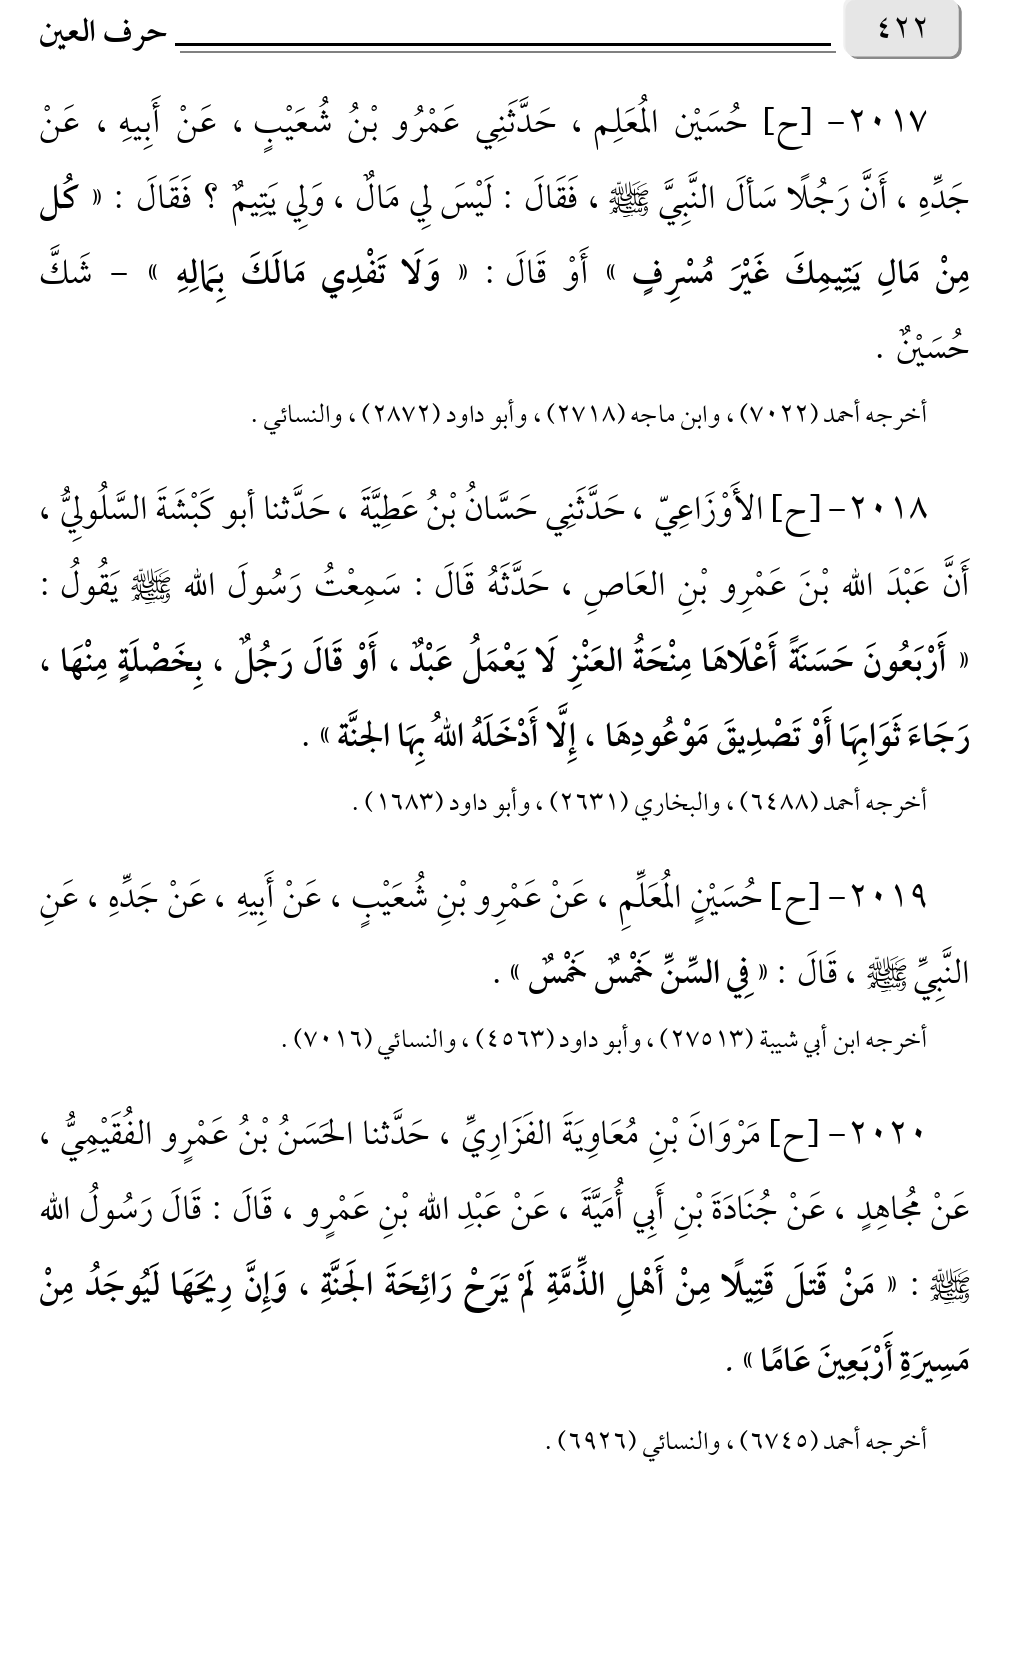 ٤٢٢
حرف العين
٢٠١٧- [ح] حُسَيْن المُعَلِم ، حَدَّثَنِي عَمْرُو بْنُ شُعَيْبٍ ، عَنْ أَبِيهِ ، عَنْ
جَدِّهِ ، أَنَّ رَجُلًا سَألَ النَّبِيَّ ﷺ ، فَقَالَ : لَيْسَ لِي مَالٌ ، وَلِي يَتِيمٌ ؟ فَقَالَ : « كُل
مِنْ مَالِ يَتِيمِكَ غَيْرَ مُسْرِفٍ » أَوْ قَالَ : « وَلَا تَفْدِي مَالَكَ بِمَالِهِ » – شَكَّ
حُسَيْنٌ .
أخرجه أحمد (٧٠٢٢) ، وابن ماجه (٢٧١٨) ، وأبو داود (٢٨٧٢) ، والنسائي .
٢٠١٨- [ح] الأَوْزَاعِيّ ، حَدَّثَنِي حَسَّانُ بْنُ عَطِيَّةَ ، حَدَّثنا أبو كَبْشَةَ السَّلُولِيُّ ،
أَنَّ عَبْدَ الله بْنَ عَمْرِو بْنِ العَاصِ ، حَدَّثَهُ قَالَ : سَمِعْتُ رَسُولَ الله ﷺ يَقُولُ :
« أَرْبَعُونَ حَسَنَةً أَعْلَاهَا مِنْحَةُ العَنْزِ لَا يَعْمَلُ عَبْدٌ ، أَوْ قَالَ رَجُلٌ ، بِخَصْلَةٍ مِنْهَا ،
رَجَاءَ ثَوَابِهَا أَوْ تَصْدِيقَ مَوْعُودِهَا ، إِلَّا أَدْخَلَهُ اللهُ بِهَا الجنَّة » .
أخرجه أحمد (٦٤٨٨) ، والبخاري (٢٦٣١) ، وأبو داود (١٦٨٣) .
٢٠١٩- [ح] حُسَيْنٍ المُعَلِّمِ ، عَنْ عَمْرِو بْنِ شُعَيْبٍ ، عَنْ أَبِيهِ ، عَنْ جَدِّهِ ، عَنِ
النَّبِيِّ ﷺ ، قَالَ : « فِي السِّنِّ خَمْسٌ خَمْسٌ » .
أخرجه ابن أبي شيبة (٢٧٥١٣) ، وأبو داود (٤٥٦٣) ، والنسائي (٧٠١٦) .
٢٠٢٠- [ح] مَرْوَانَ بْنِ مُعَاوِيَةَ الفَزَارِيِّ ، حَدَّثنا الحَسَنُ بْنُ عَمْرٍو الفُقَيْمِيُّ ،
عَنْ مُجَاهِدٍ ، عَنْ جُنَادَةَ بْنِ أَبِي أُمَيَّةَ ، عَنْ عَبْدِ الله بْنِ عَمْرٍو ، قَالَ : قَالَ رَسُولُ الله
ﷺ : « مَنْ قَتلَ قَتِيلًا مِنْ أَهْلِ الذِّمَّةِ لَمْ يَرَحْ رَائِحَةَ الجَنَّةِ ، وَإِنَّ رِيحَهَا لَيُوجَدُ مِنْ
مَسِيرَةِ أَرْبَعِينَ عَامًا » .
أخرجه أحمد (٦٧٤٥) ، والنسائي (٦٩٢٦) .